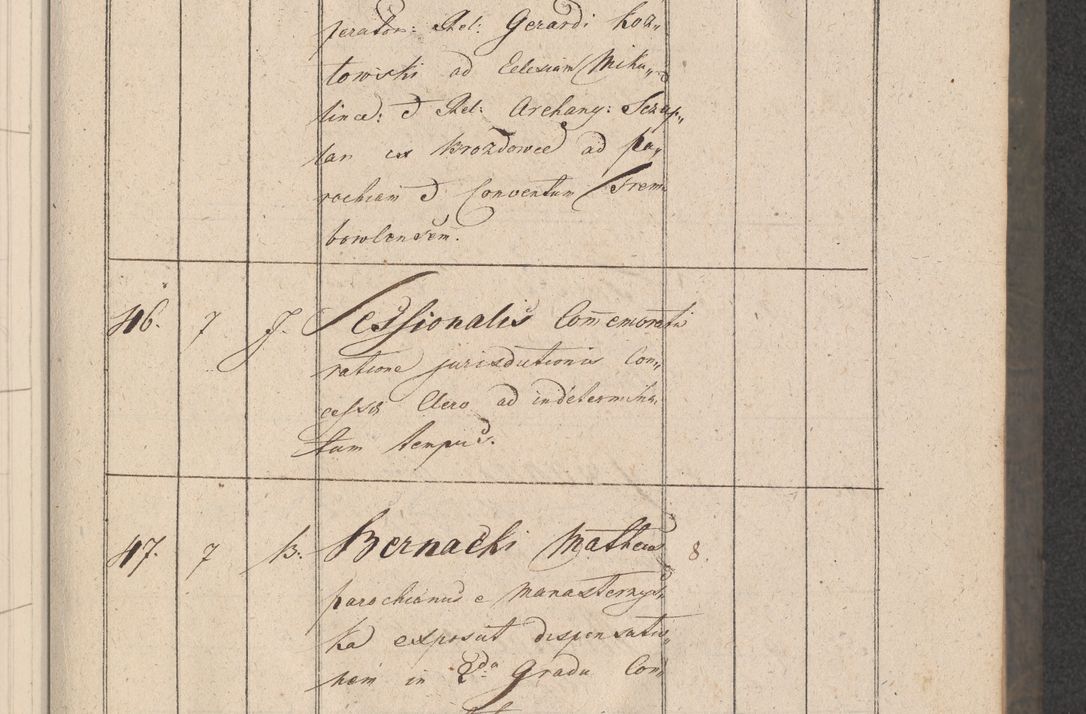 perator: Rel: Gerardi Koa„
towski ad Eclesiam Miku„
lince: & Rel: Archang: Sczep„
lan ex Brozdowce ad pa„
rochiam & Conventum Trem
bowlensem.
46. 7 J. Sessionalis Comemorati
ratione jurisdictionis Con„
cessae Clero ad indetermina„
tum tempus.
47. 7 B. Bernacki Matheus 8.
parochianus e Manasterzys„
ka exposcit dispensatio„
nem in 2da Gradu Con„